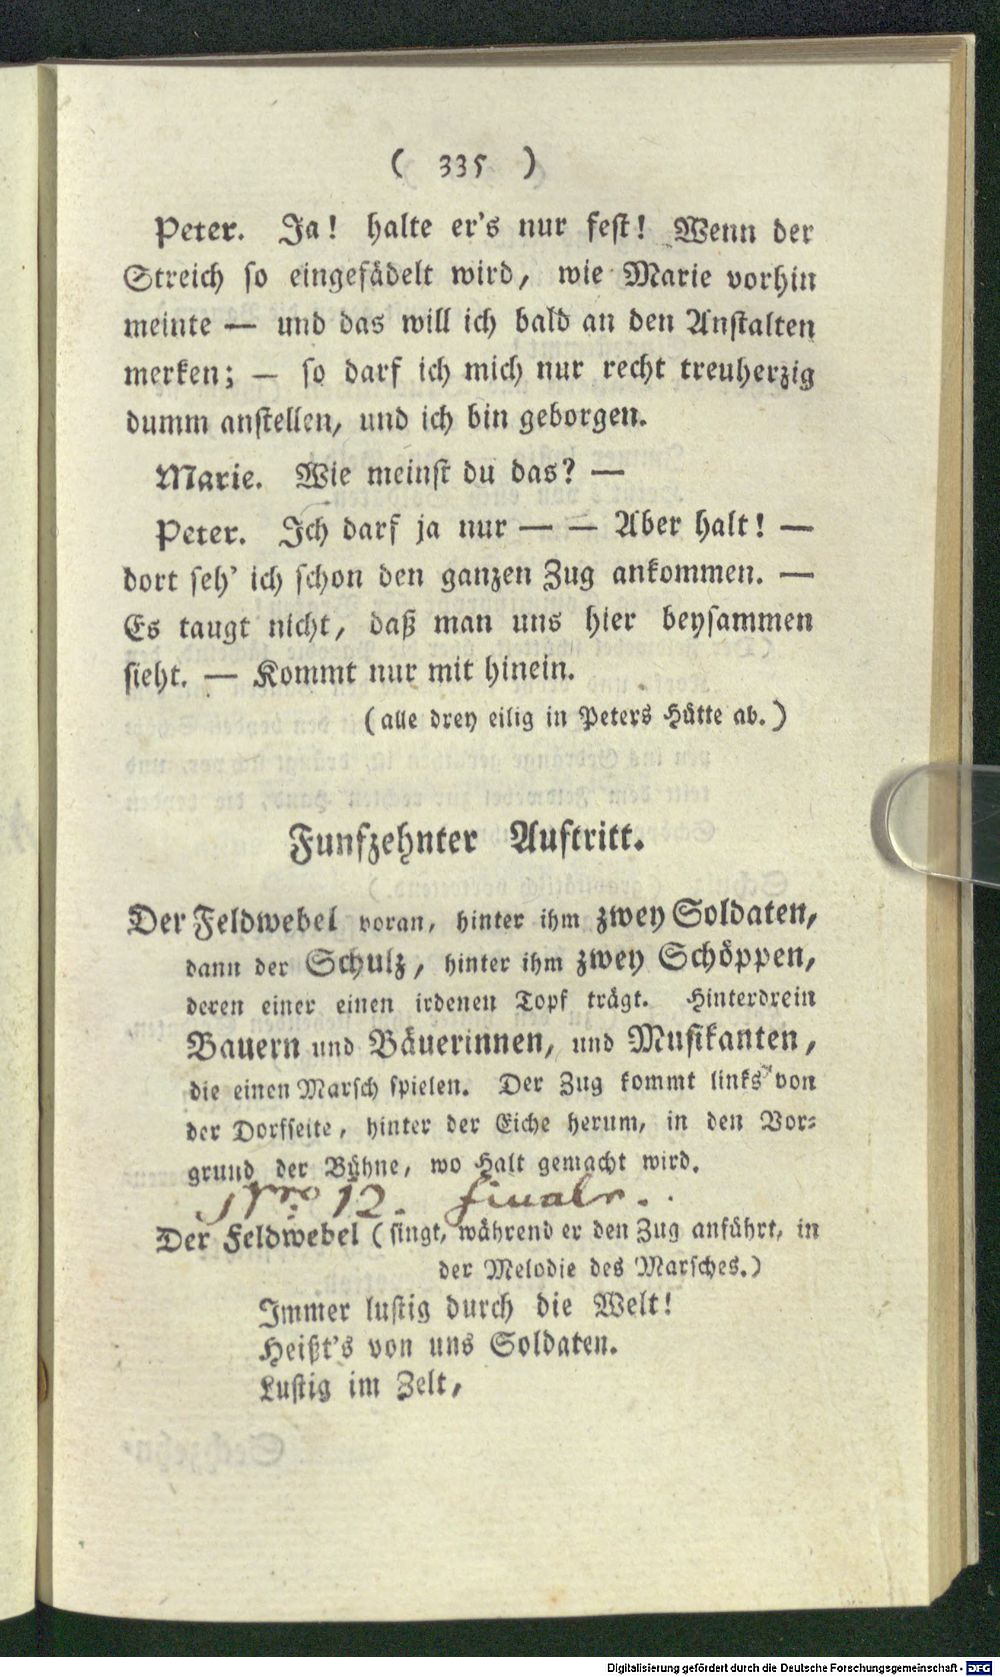 ( 335 )
Peter. Ja! halte er's nur fest! Wenn der
Streich so eingefädelt wird, wie Marie vorhin
meinte — und das will ich bald an den Anstalten
merken; — so darf ich mich nur recht treuherzig
dumm anstellen, und ich bin geborgen.
Marie. Wie meinst du das? —
Peter. Ich darf ja nur — — Aber halt! —
dort seh' ich schon den ganzen Zug ankommen. —
Es taugt nicht, daß man uns hier beysammen
sieht. — Kommt nur mit hinein.
(alle drey eilig in Peters Hütte ab.)
Funfzehnter Auftritt.
Der Feldwebel voran, hinter ihm zwey Soldaten,
dann der Schulz, hinter ihm zwey Schöppen,
deren einer einen irdenen Topf trägt. Hinterdrein
Bauern und Bäuerinnen, und Musikanten,
die einen Marsch spielen. Der Zug kommt links von
der Dorfseite, hinter der Eiche herum, in den Vor-
grund der Bühne, wo Halt gemacht wird.
Nro 12. Finale.
Der Feldwebel (singt, während er den Zug anführt, in
der Melodie des Marsches.)
Immer lustig durch die Welt!
Heißt's von uns Soldaten.
Lustig im Zelt,
Digitalisierung gefördert durch die Deutsche Forschungsgemeinschaft - DFG